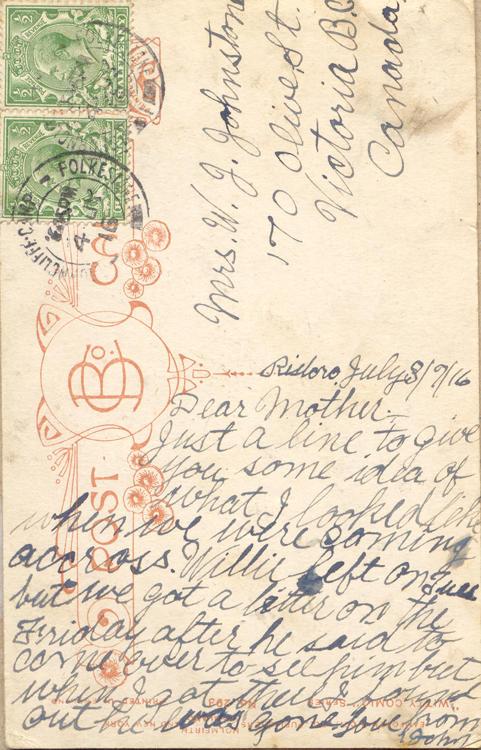 Mrs. W. J. Johnstone
170 Olive St.
Victoria B.C
Canada
POST CARD
B & Co.
FOLKESTONE
HALFPENNY
July 3/7/16
Dear Mother –
Just a line to give
you some idea of
what I looked like
when we were coming
accross. Willie left on Tues
but we got a letter on the
Friday after he said to
come over to see him but
when I got there I found
out he was gone your son
John
"WITTY COMIC" SERIES
No. 293
PRINTED IN ENGLAND
HOLMFIRTH